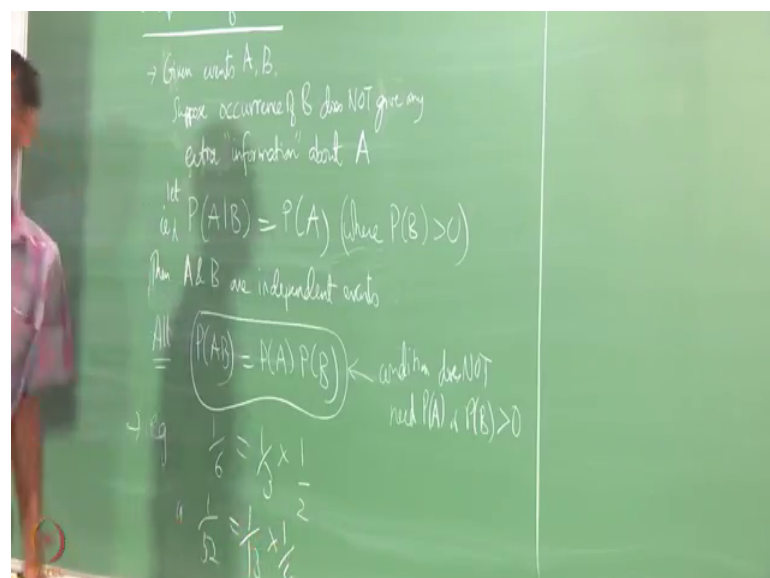 → Given events A, B.
Suppose occurrence of B does NOT give any
extra "information" about A
let
i.e., P(A|B) = P(A) (where P(B) > 0)
Then A & B are independent events
Alt P(AB) = P(A) P(B) ← condition does NOT
need P(A), P(B) > 0
→ eg 1/6 = 1/3 × 1/2
" 1/52 = 1/13 × 1/4